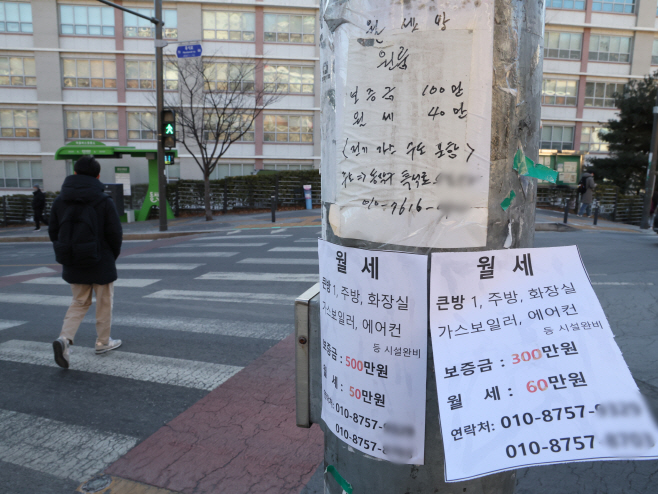 원 세 방
원룸
보증금 100만
월세 40만
(전기 가스 수도 포함)
010-7616-
월 세
큰방 1, 주방, 화장실
가스보일러, 에어컨
등 시설완비
보증금 : 500만원
월 세 : 50만원
010-8757-
010-8757-
월 세
큰방 1, 주방, 화장실
가스보일러, 에어컨
등 시설완비
보증금 : 300만원
월 세 : 60만원
연락처: 010-8757-
010-8757-